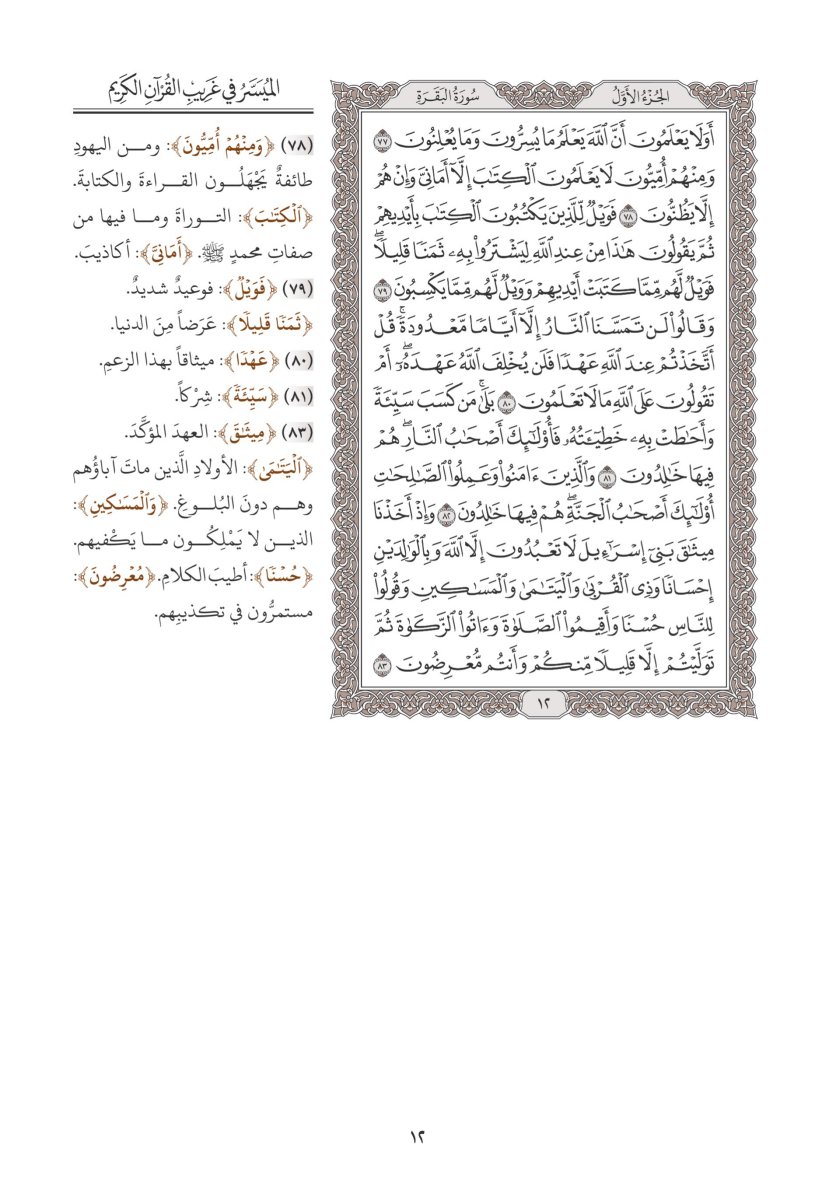 الجُزْءُ الأَوَّلُ
سُورَةُ البَقَرَةِ
أَوَلَا يَعۡلَمُونَ أَنَّ ٱللَّهَ يَعۡلَمُ مَا يُسِرُّونَ وَمَا يُعۡلِنُونَ ٧٧
وَمِنۡهُمۡ أُمِّيُّونَ لَا يَعۡلَمُونَ ٱلۡكِتَٰبَ إِلَّآ أَمَانِيَّ وَإِنۡ هُمۡ
إِلَّا يَظُنُّونَ ٧٨ فَوَيۡلٞ لِّلَّذِينَ يَكۡتُبُونَ ٱلۡكِتَٰبَ بِأَيۡدِيهِمۡ
ثُمَّ يَقُولُونَ هَٰذَا مِنۡ عِندِ ٱللَّهِ لِيَشۡتَرُواْ بِهِۦ ثَمَنٗا قَلِيلٗاۖ
فَوَيۡلٞ لَّهُم مِّمَّا كَتَبَتۡ أَيۡدِيهِمۡ وَوَيۡلٞ لَّهُم مِّمَّا يَكۡسِبُونَ ٧٩
وَقَالُواْ لَن تَمَسَّنَا ٱلنَّارُ إِلَّآ أَيَّامٗا مَّعۡدُودَةٗۚ قُلۡ
أَتَّخَذۡتُمۡ عِندَ ٱللَّهِ عَهۡدٗا فَلَن يُخۡلِفَ ٱللَّهُ عَهۡدَهُۥٓۖ أَمۡ
تَقُولُونَ عَلَى ٱللَّهِ مَا لَا تَعۡلَمُونَ ٨٠ بَلَىٰۚ مَن كَسَبَ سَيِّئَةٗ
وَأَحَٰطَتۡ بِهِۦ خَطِيٓـَٔتُهُۥ فَأُوْلَٰٓئِكَ أَصۡحَٰبُ ٱلنَّارِۖ هُمۡ
فِيهَا خَٰلِدُونَ ٨١ وَٱلَّذِينَ ءَامَنُواْ وَعَمِلُواْ ٱلصَّٰلِحَٰتِ
أُوْلَٰٓئِكَ أَصۡحَٰبُ ٱلۡجَنَّةِۖ هُمۡ فِيهَا خَٰلِدُونَ ٨٢ وَإِذۡ أَخَذۡنَا
مِيثَٰقَ بَنِيٓ إِسۡرَٰٓءِيلَ لَا تَعۡبُدُونَ إِلَّا ٱللَّهَ وَبِٱلۡوَٰلِدَيۡنِ
إِحۡسَانٗا وَذِي ٱلۡقُرۡبَىٰ وَٱلۡيَتَٰمَىٰ وَٱلۡمَسَٰكِينِ وَقُولُواْ
لِلنَّاسِ حُسۡنٗا وَأَقِيمُواْ ٱلصَّلَوٰةَ وَءَاتُواْ ٱلزَّكَوٰةَ ثُمَّ
تَوَلَّيۡتُمۡ إِلَّا قَلِيلٗا مِّنكُمۡ وَأَنتُم مُّعۡرِضُونَ ٨٣
١٢
المُيَسَّرُ في غَرِيبِ القُرْآنِ الكَرِيمِ
(٧٨) ﴿وَمِنۡهُمۡ أُمِّيُّونَ﴾: ومن اليهودِ
طائفةٌ يَجْهَلُون القراءةَ والكتابةَ.
﴿ٱلۡكِتَٰبَ﴾: التوراةَ وما فيها من
صفاتِ محمدٍ ﷺ. ﴿أَمَانِيَّ﴾: أكاذيبَ.
(٧٩) ﴿فَوَيۡلٞ﴾: فوعيدٌ شديدٌ.
﴿ثَمَنٗا قَلِيلٗا﴾: عَرَضاً مِنَ الدنيا.
(٨٠) ﴿عَهۡدٗا﴾: ميثاقاً بهذا الزعمِ.
(٨١) ﴿سَيِّئَةٗ﴾: شِرْكاً.
(٨٣) ﴿مِيثَٰقَ﴾: العهدَ المؤكَّدَ.
﴿ٱلۡيَتَٰمَىٰ﴾: الأولادِ الَّذين ماتَ آباؤُهم
وهم دونَ البُلوغِ. ﴿وَٱلۡمَسَٰكِينِ﴾:
الذين لا يَمْلِكُون ما يَكْفيهم.
﴿حُسۡنٗا﴾: أطيبَ الكلامِ. ﴿مُّعۡرِضُونَ﴾:
مستمرُّون في تكذيبِهم.
١٢